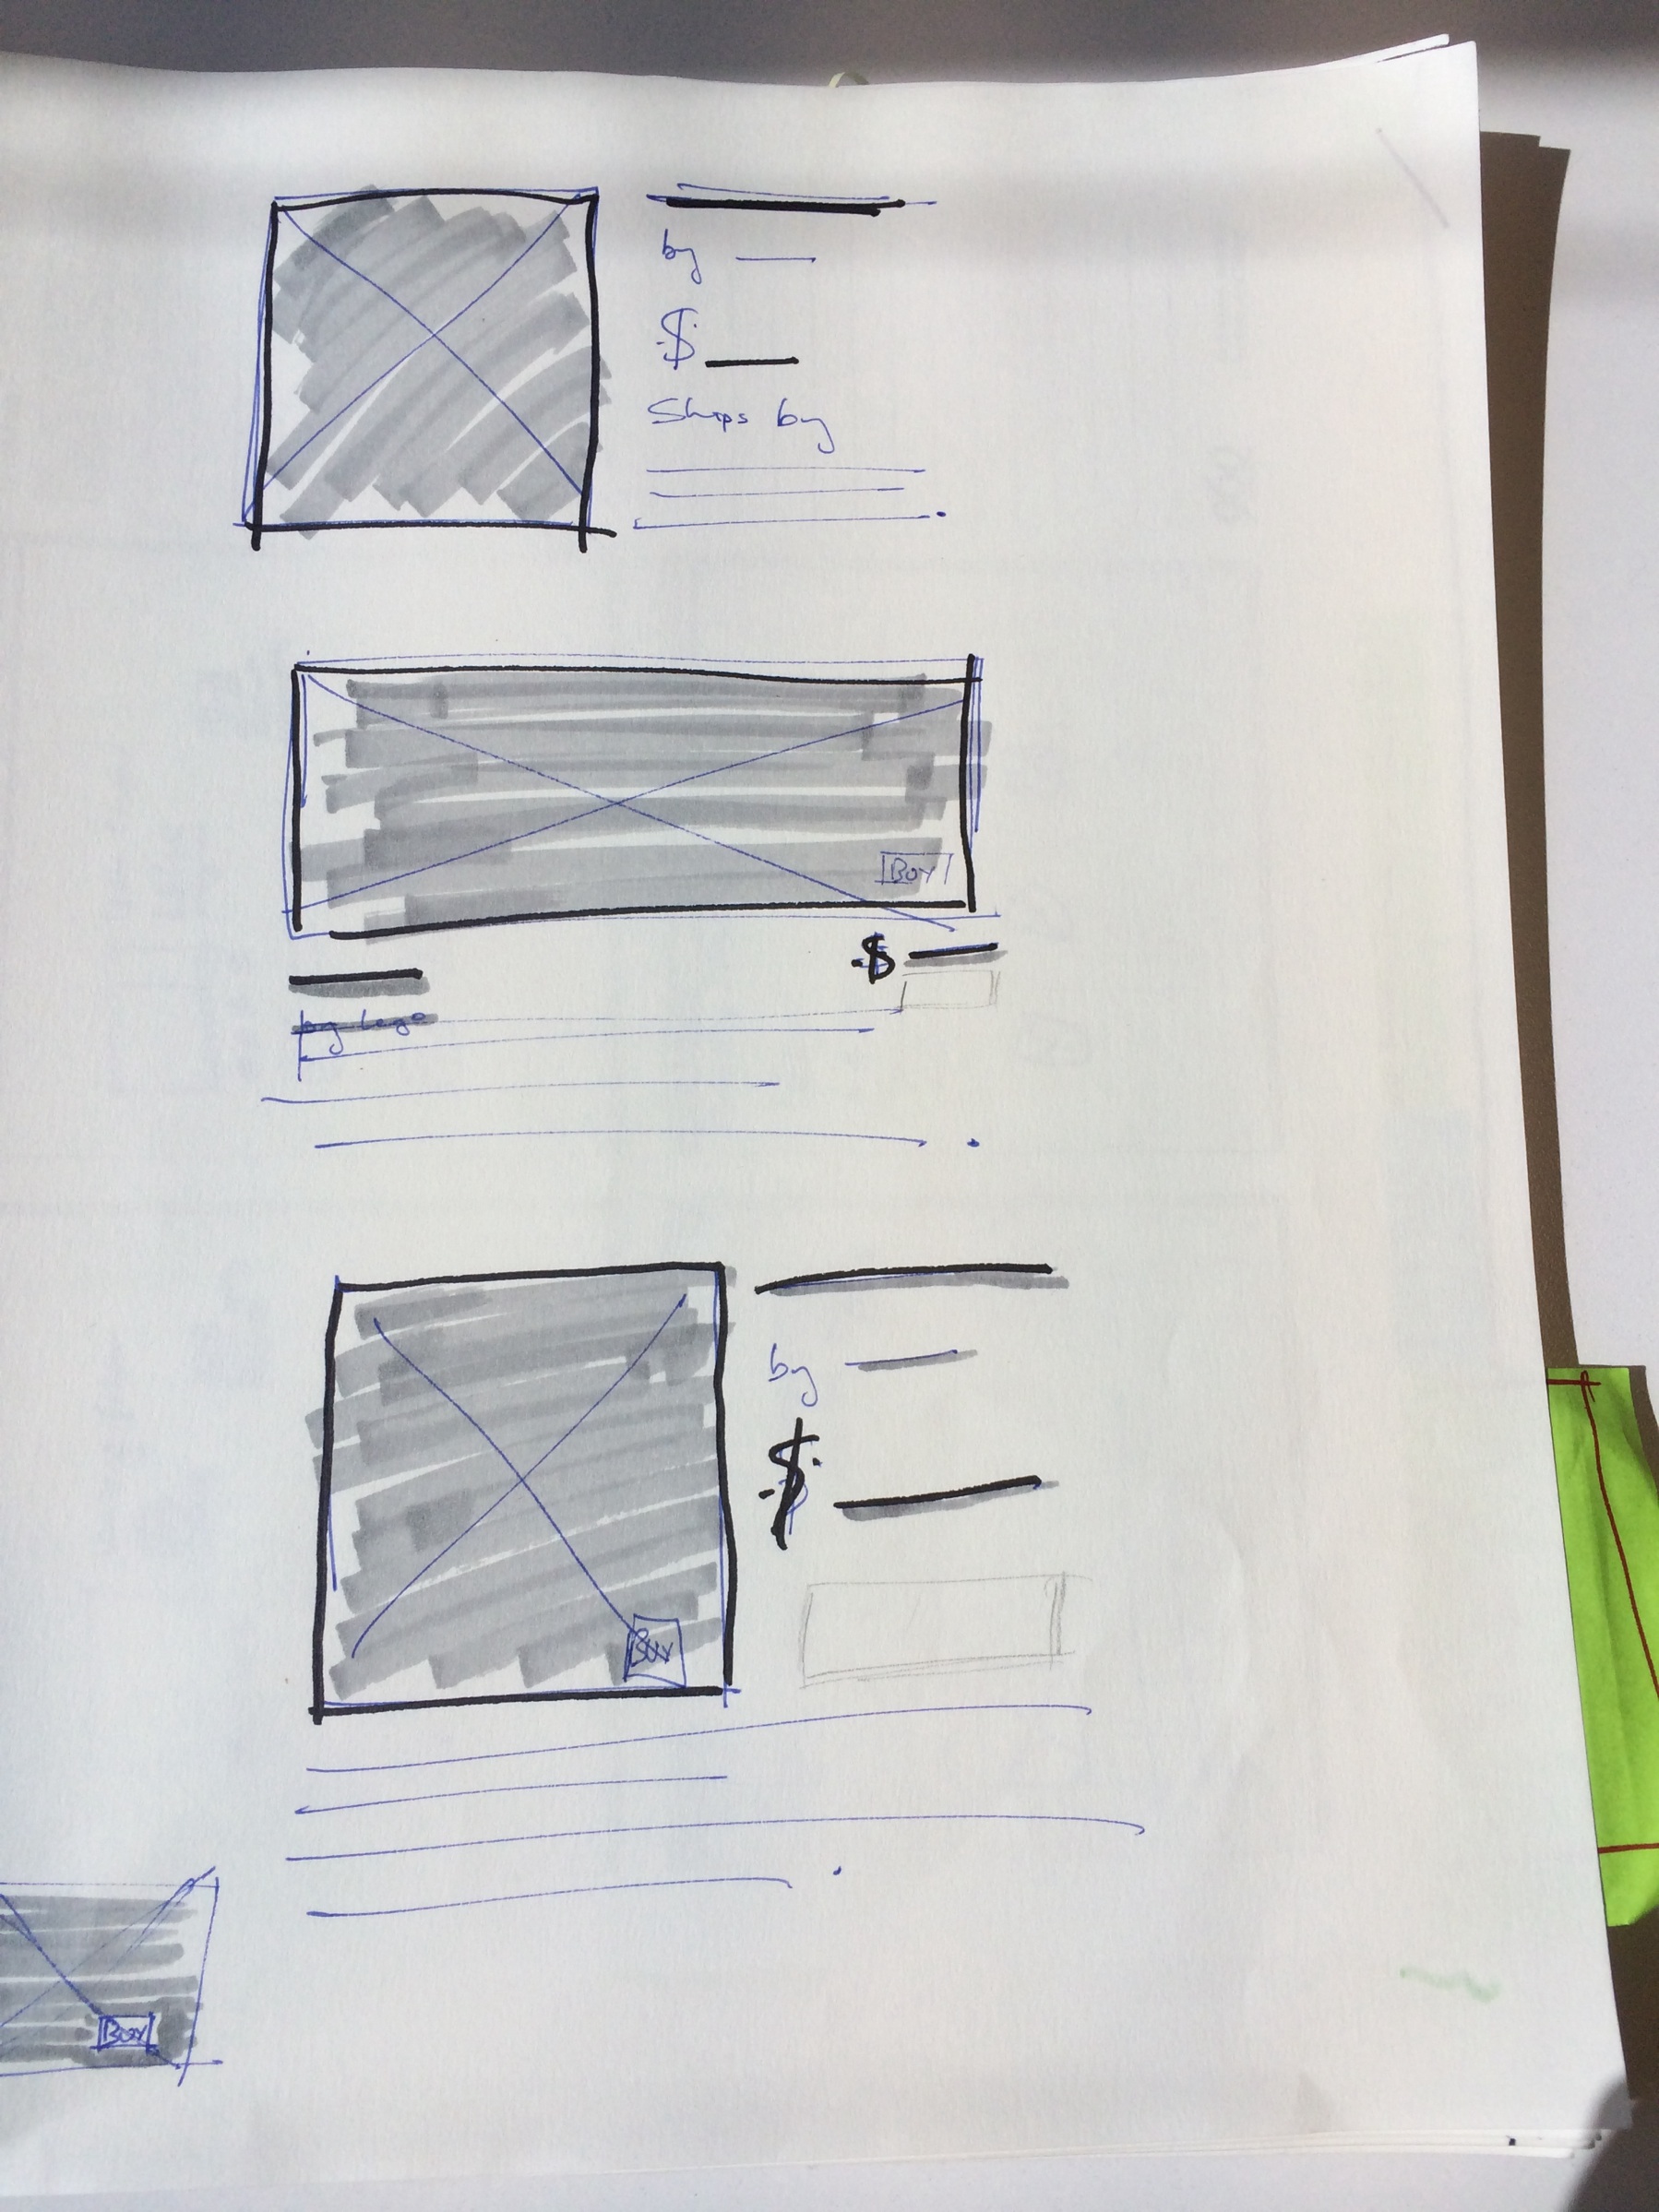 by
$
Ships by
BUY
$
by lego
by
$
BUY
BUY